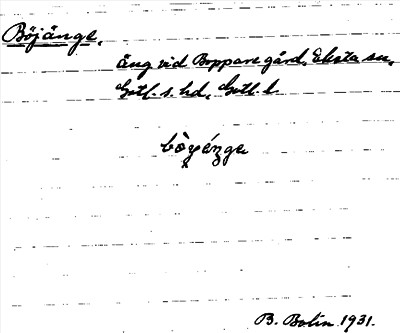 Böjänge.
äng vid Boppare gård, Eksta sn,
Gotl. s. hd, Gotl. l.
bòyánga
B. Bolin 1931.